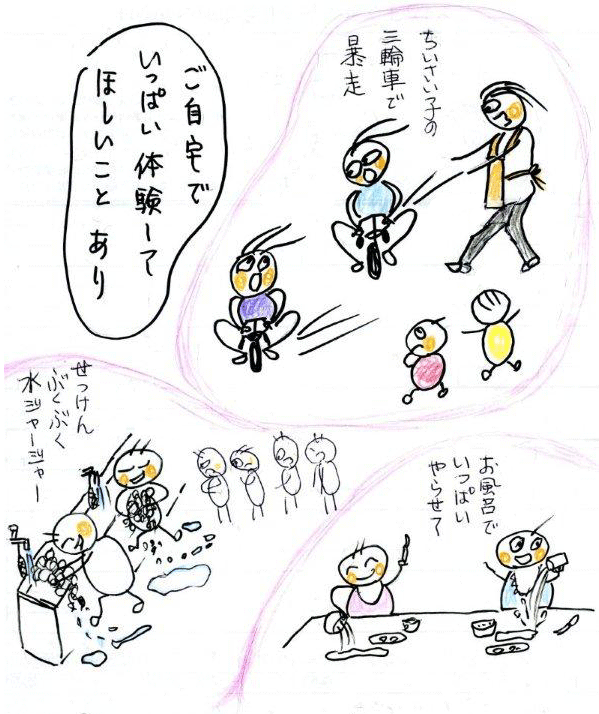 ご自宅で
いっぱい体験して
ほしいこと あり
ちいさい子の
三輪車で
暴走
せっけん
ぶくぶく
水ジャージャー
お風呂で
いっぱい
やらせて